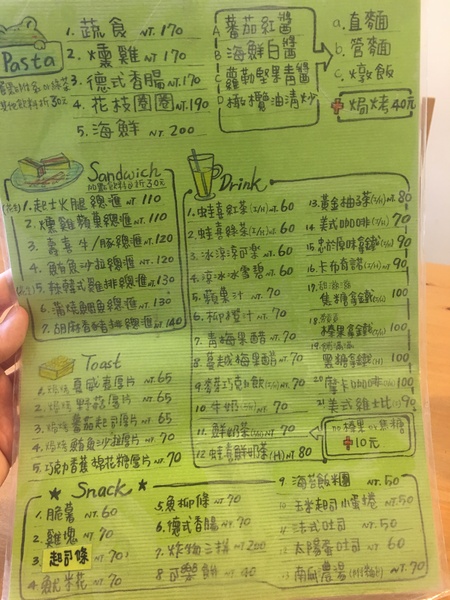 Pasta
1. 蔬食 NT. 170
2. 燻雞 NT 170
3. 德式香腸 NT. 170
4. 花枝圈圈 NT. 190
5. 海鮮 NT. 200
A 蕃茄紅醬
B 海鮮白醬
C 蘿勒堅果青醬
D 橄欖油清炒
a. 直麵
b. 管麵
c. 燉飯
+ 焗烤 40元
Sandwich
1. 起士火腿總匯 NT 110
2. 燻雞蘋果總匯 NT 110
3. 壽喜牛/豚總匯 NT. 120
4. 鮪魚沙拉總匯 NT. 120
5. 韓式雞排總匯 NT. 130
6. 蒲燒鯛魚總匯 NT. 130
7. 胡麻香豬排總匯 NT 140
Toast
1. 夏威夷厚片 NT. 65
2. 野菇厚片 NT. 65
3. 蕃茄起司厚片 NT. 65
4. 鮪魚沙拉厚片 NT. 70
5. 巧克香蕉棉花糖厚片 NT. 70
Drink
1. 蛙喜紅茶 (I/H) NT. 60
2. 蛙喜綠茶 (I/H) NT. 60
3. 冰涼涼可樂 NT. 60
4. 涼冰冰雪碧 NT. 60
5. 蘋果汁 NT. 70
6. 柳橙汁 NT. 70
7. 青梅果醋 NT. 70
8. 蔓越梅果醋 NT. 70
9. 麥芽巧克力飲 (I/H) NT. 70
10. 牛奶 NT. 70
11. 鮮奶茶 NT 70
12. 蛙喜鮮奶茶 (H) NT 80
13. 黃金柚子茶 NT. 80
14. 美式咖啡 (I/H) NT. 70
15. 忠於原味拿鐵 90
16. 卡布奇諾 (I/H) NT. 90
17. 焦糖拿鐵 100
18. 榛果拿鐵 100
19. 黑糖拿鐵 (H) 100
20. 摩卡咖啡 100
21. 美式維士比 90
加榛果 or 焦糖
+ 10元
★ Snack ★
1. 脆薯 NT. 60
2. 雞塊 NT 70
3. 起司條 NT 70
4. 魷米花 NT 70
5. 魚柳條 NT 70
6. 德式香腸 NT. 70
7. 炸物三拼 NT 200
8. 可樂餅 NT 40
9. 海苔飯糰 NT. 50
10. 玉米起司小蛋捲 NT. 50
11. 法式吐司 NT. 50
12. 太陽蛋吐司 NT 60
13. 南瓜濃湯 NT. 70